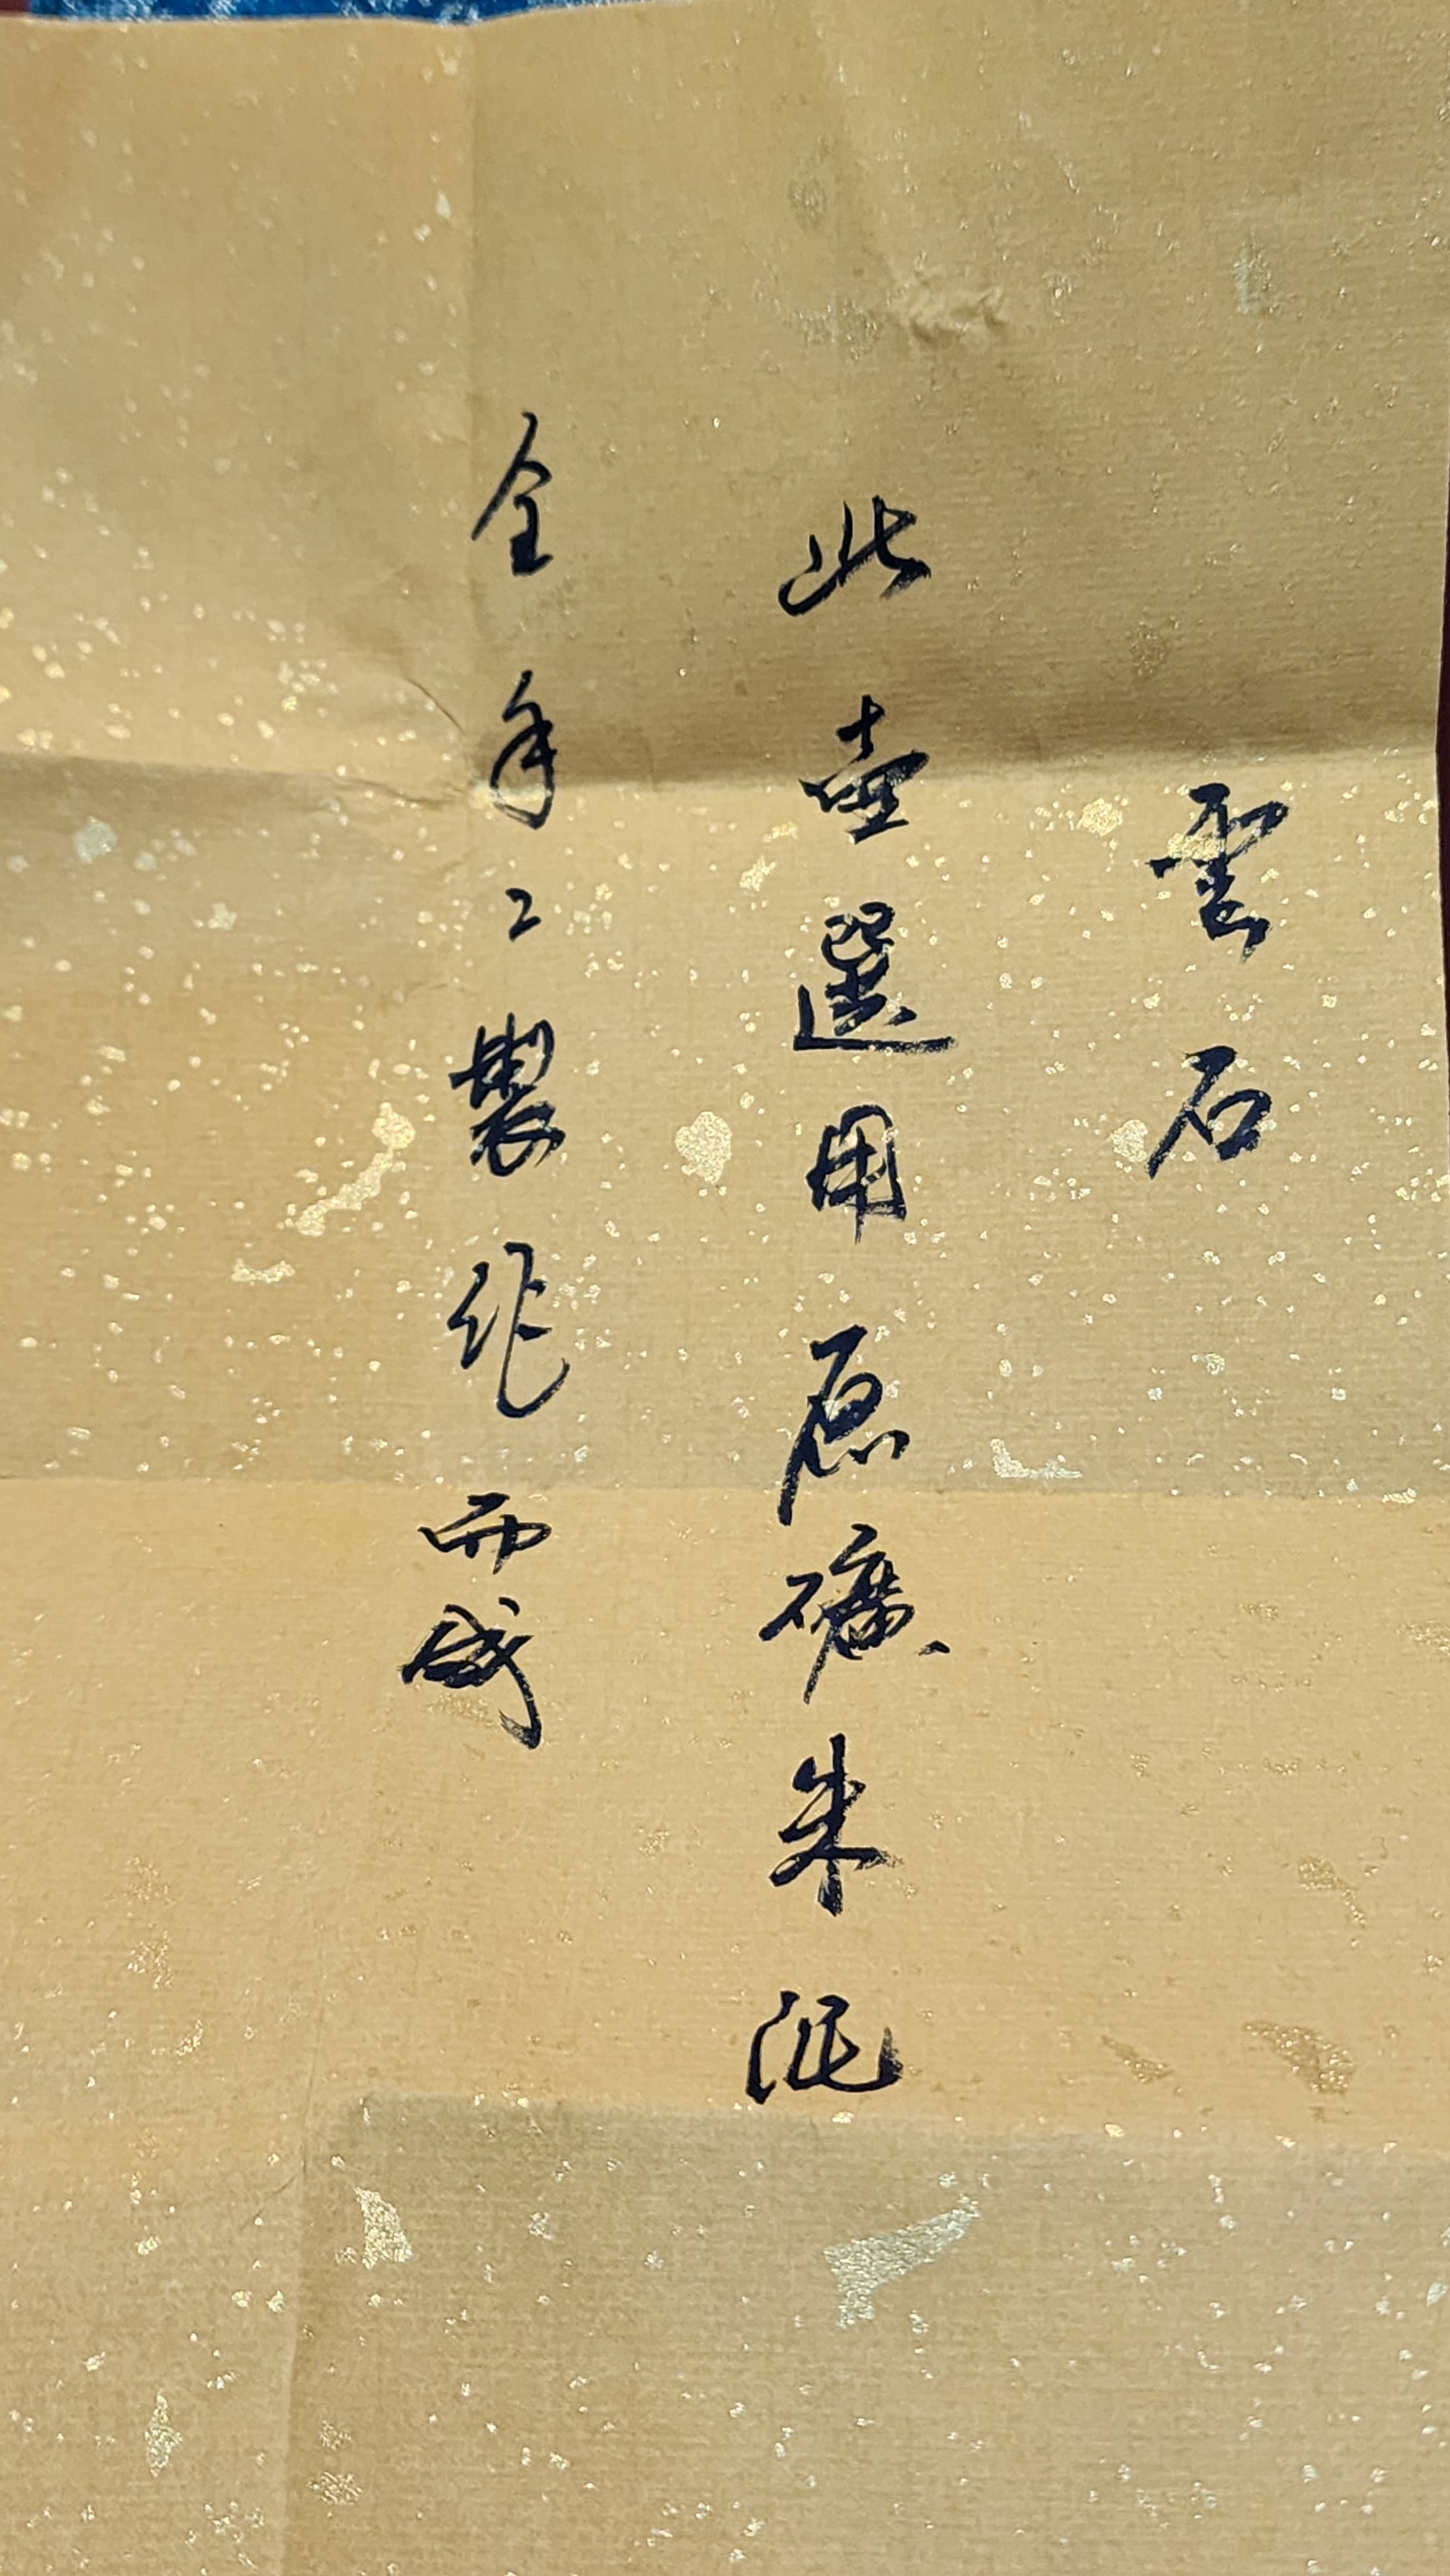 雲石
此壺選用原礦朱泥
全手工製作而成